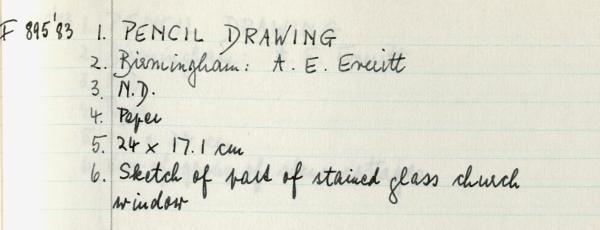 F 895'83 1. PENCIL DRAWING
2. Birmingham: A. E. Everitt
3. N.D.
4. Paper
5. 24 x 17.1 cm
6. Sketch of part of stained glass church
window